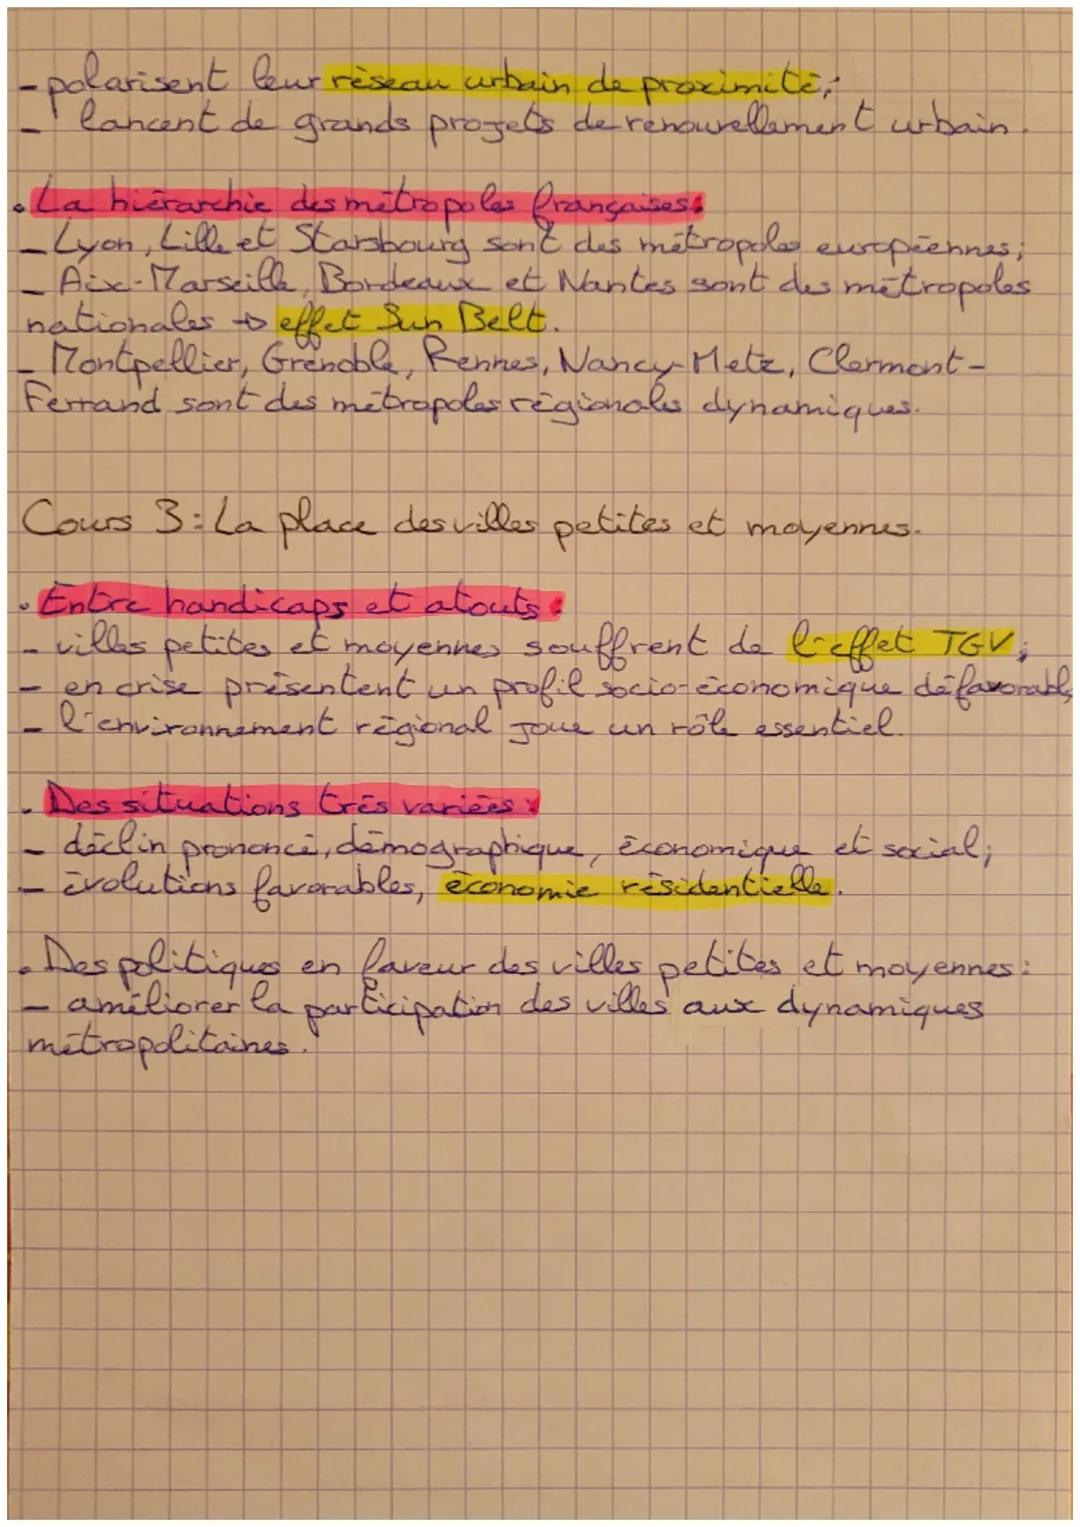 - polarisent leur réseau urbain de proximité;
- lancent de grands projets de renouvellement urbain.
• La hiérarchie des métropoles françaises:
- Lyon, Lille et Starsbourg sont des métropoles européennes;
- Aix-Marseille, Bordeaux et Nantes sont des métropoles
nationales → effet Sun Belt.
- Montpellier, Grenoble, Rennes, Nancy-Metz, Clermont-
Ferrand sont des métropoles régionales dynamiques.
Cours 3: La place des villes petites et moyennes.
• Entre handicaps et atouts:
- villes petites et moyennes souffrent de l'effet TGV;
- en crise présentent un profil socio-économique défavorable,
- l'environnement régional joue un rôle essentiel.
• Des situations très variées:
- déclin prononcé, démographique, économique et social;
- évolutions favorables, économie résidentielle.
• Des politiques en faveur des villes petites et moyennes:
- améliorer la participation des villes aux dynamiques
métropolitaines.